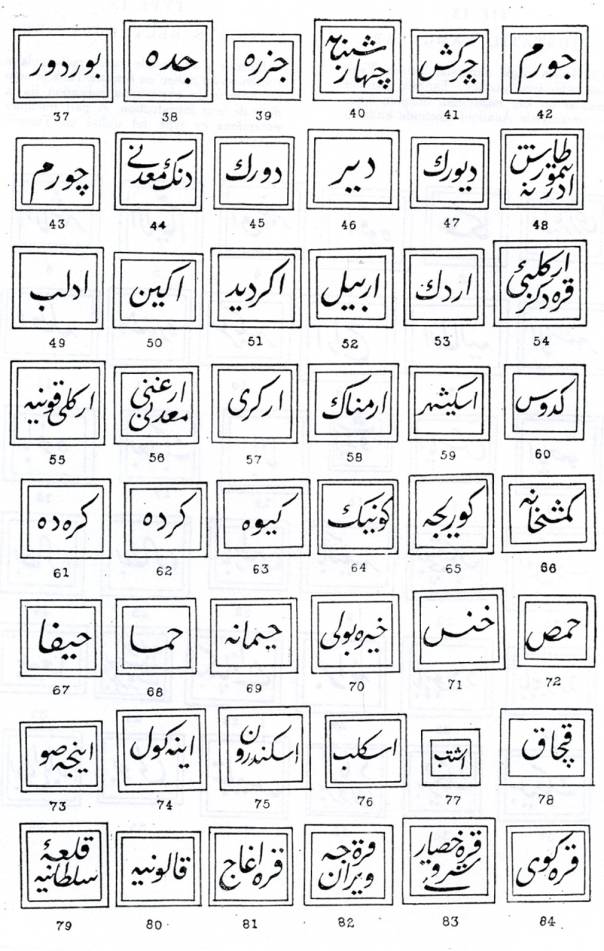 بوردور
37
جده
38
جزره
39
چهارشنبه
40
چركش
41
جورم
42
چورم
43
دنك معدنی
44
دورك
45
دیر
46
دیورك
47
ادرنه
48
ادلب
49
اكین
50
اكردید
51
اربیل
52
اردك
53
اركلیئ
قره دكز
54
اركلی قونیه
55
ارغنی
معدنی
56
اركری
57
ارمناك
58
اسكیشهر
59
كدوس
60
كره ده
61
كرده
62
كیوه
63
كونیك
64
كوریجه
65
كمشخانه
66
حیفا
67
حما
68
جیمانه
69
خیره بولی
70
خنس
71
حمص
72
اینجه صو
73
اینه كول
74
اسكندرون
75
اسكلب
76
اشتب
77
قچاق
78
قلعهٔ
سلطانیه
79
قالونیه
80
قره اغاج
81
قره جه
ویران
82
قره حصار
شرقی
83
قره كوی
84